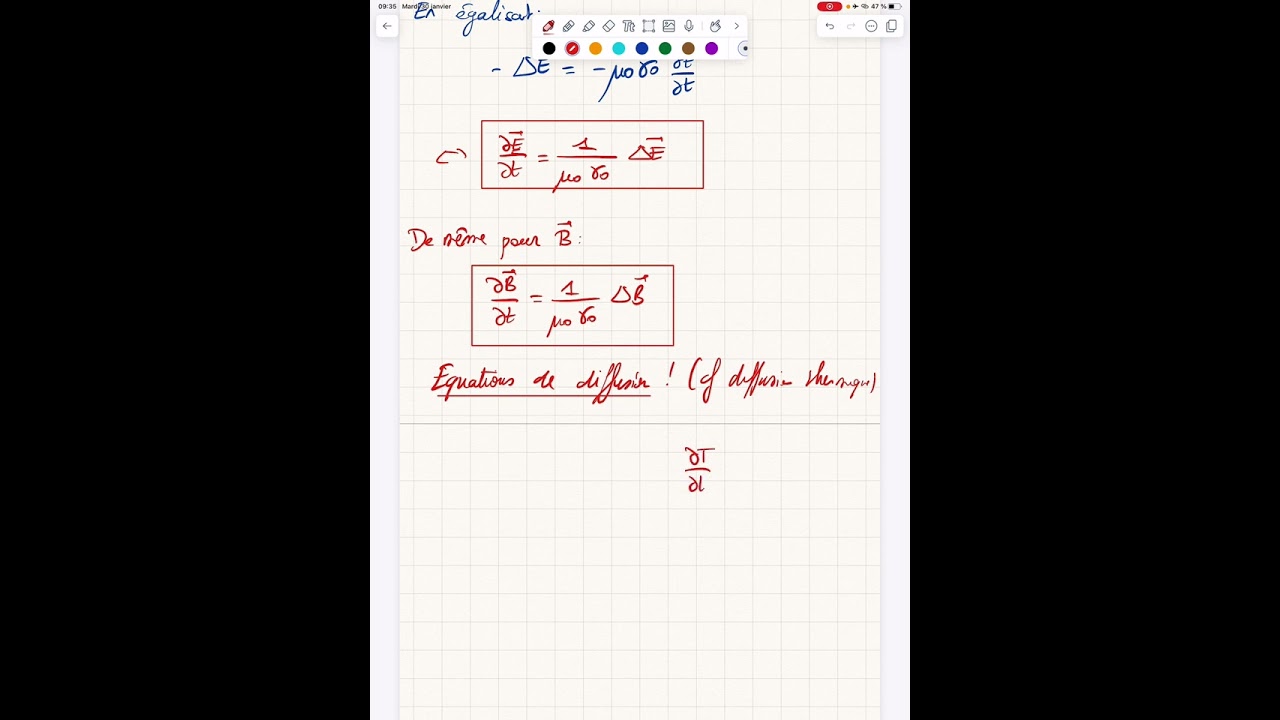 09:35 Mardi 30 janvier 47 %
En égalisant:
- ΔE = - μ0 γ0 ∂E/∂t
⇔ ∂E⃗/∂t = 1/(μ0 γ0) ΔE⃗
De même pour B⃗ :
∂B⃗/∂t = 1/(μ0 γ0) ΔB⃗
Equations de diffusion ! (cf diffusion thermique)
∂T/∂t